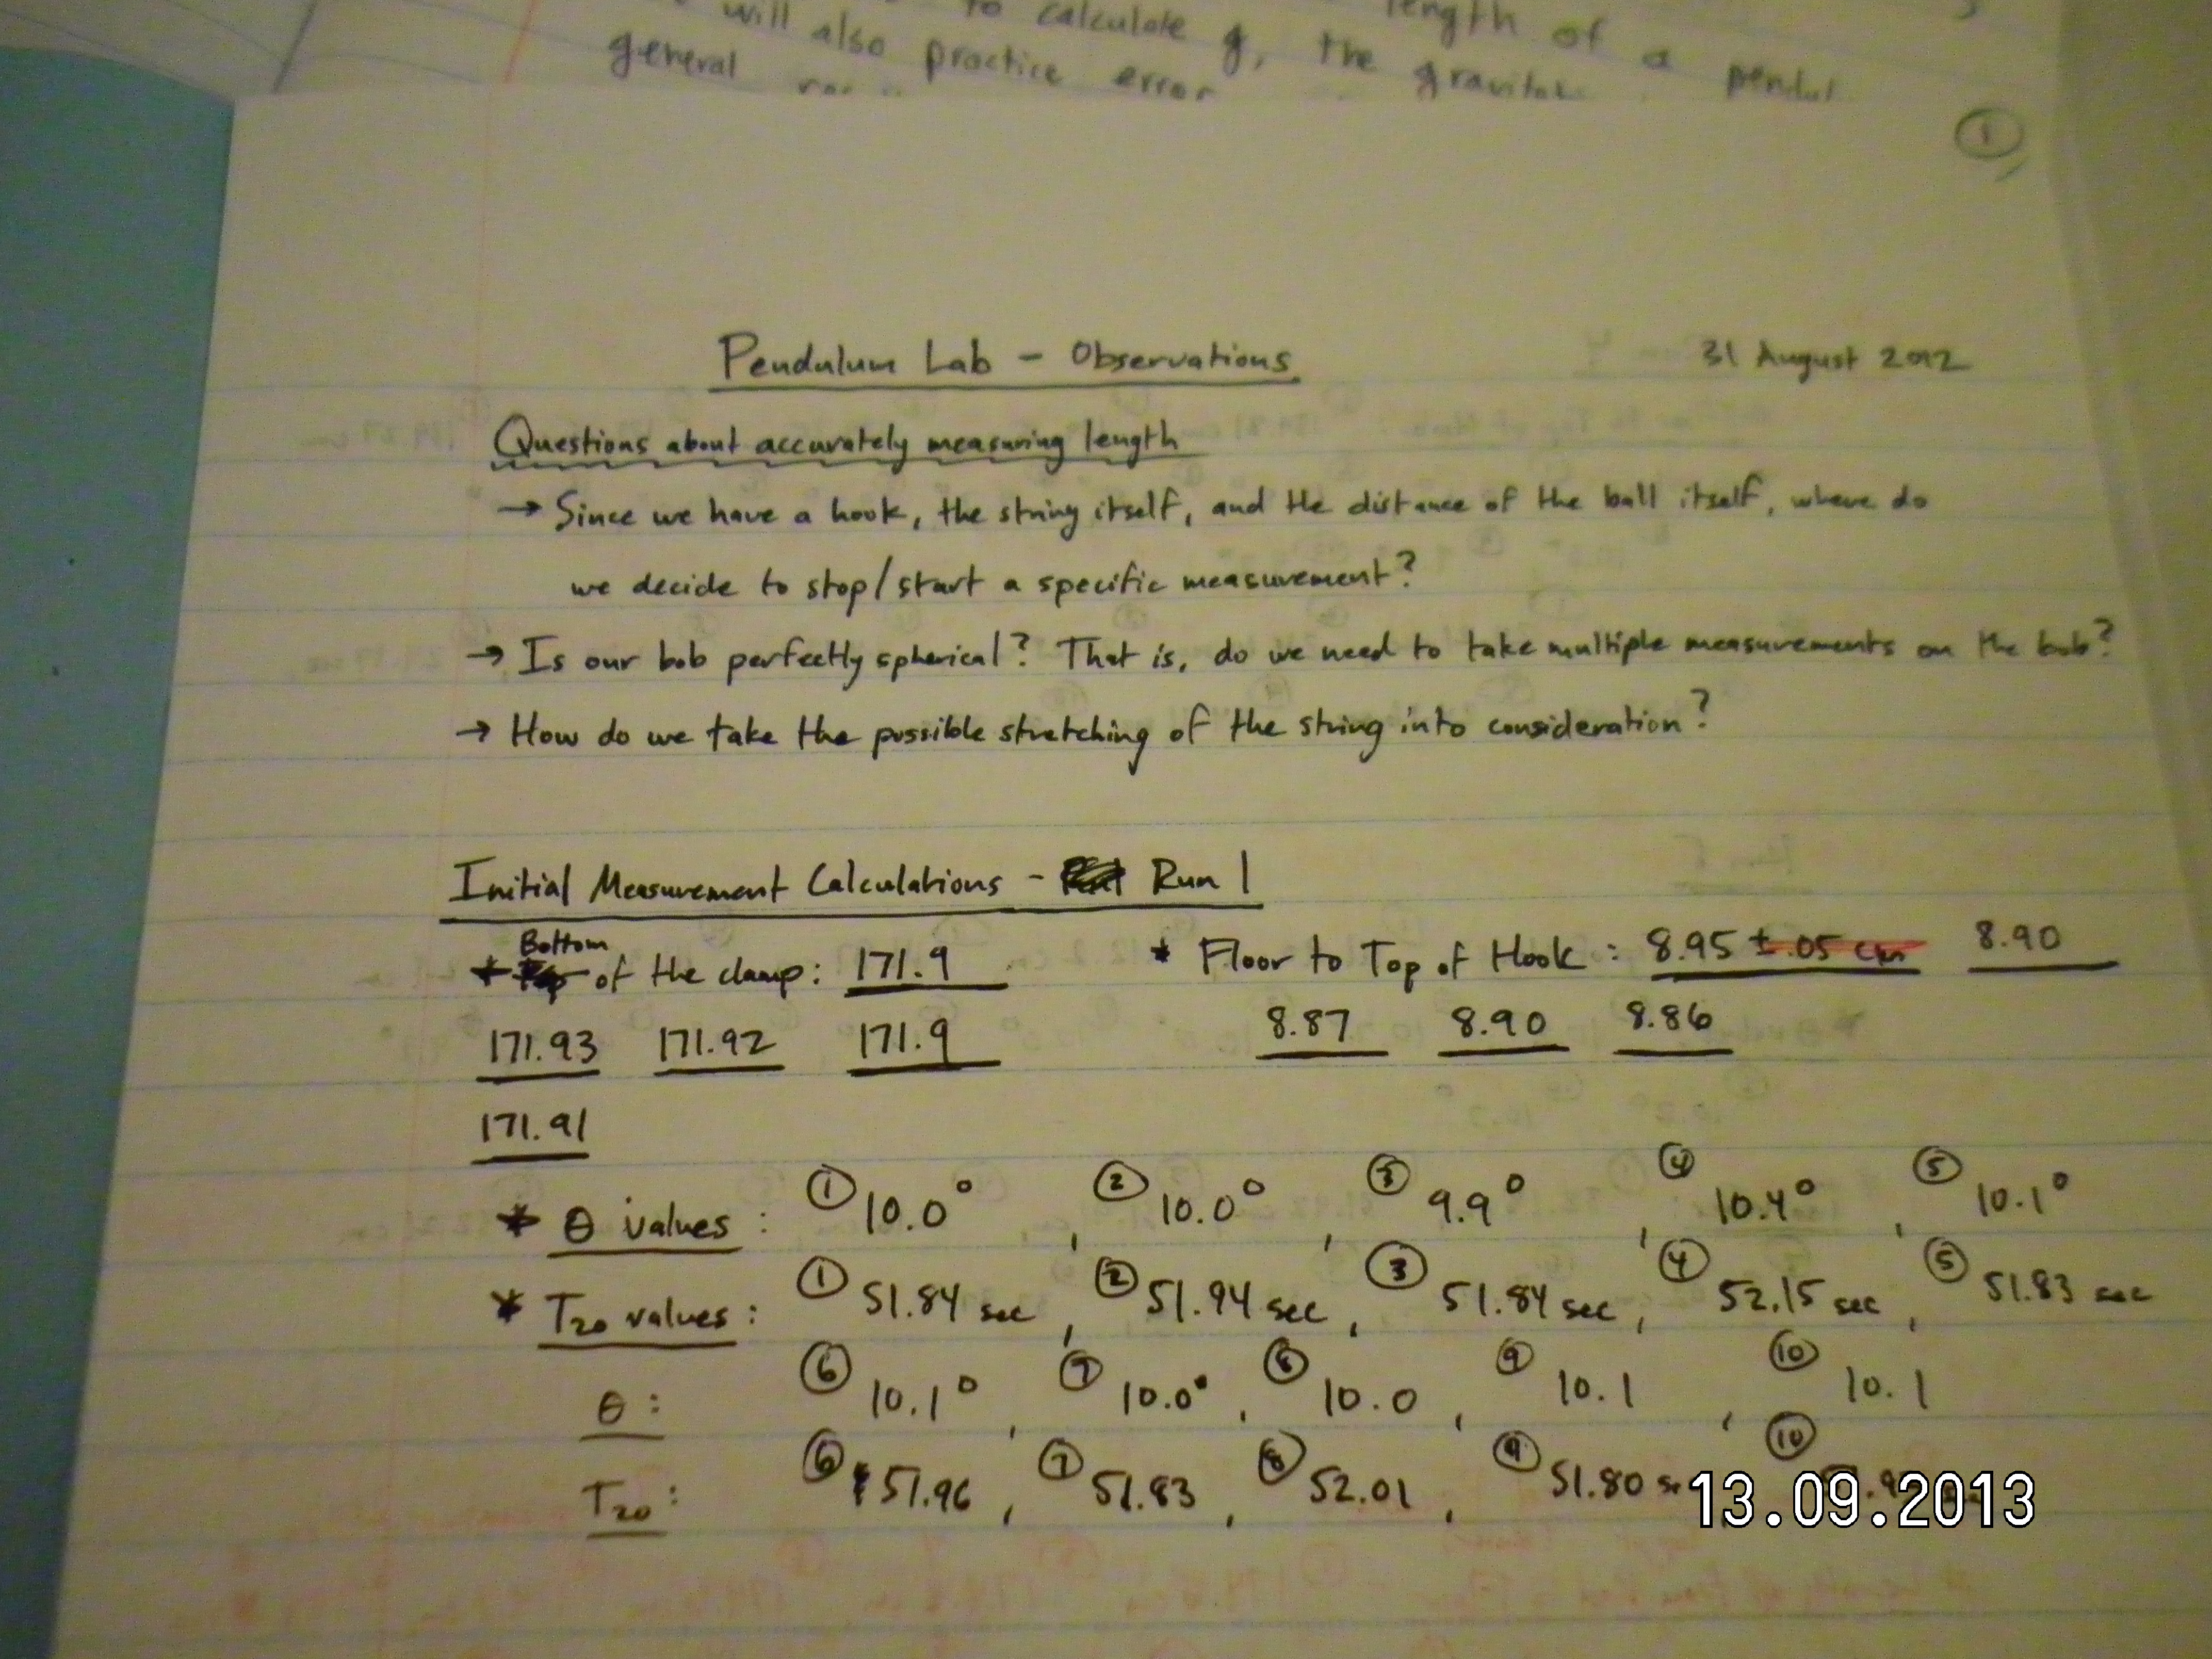 to calculate g, the length of a
will also practice error the
general
1
Pendulum Lab - Observations 31 August 2012
Questions about accurately measuring length
→ Since we have a hook, the string itself, and the distance of the ball itself, where do
we decide to stop/start a specific measurement?
→ Is our bob perfectly spherical? That is, do we need to take multiple measurements on the bob?
→ How do we take the possible stretching of the string into consideration?
Initial Measurement Calculations - Run 1
* Bottom of the clamp: 171.9 * Floor to Top of Hook: 8.95 ± .05 cm 8.90
171.93 171.92 171.9 8.87 8.90 8.86
171.91
* θ values: ① 10.0°, ② 10.0°, ③ 9.9°, ④ 10.4°, ⑤ 10.1°
* T20 values: ① 51.84 sec, ② 51.94 sec, ③ 51.84 sec, ④ 52.15 sec, ⑤ 51.83 sec
θ: ⑥ 10.1°, ⑦ 10.0°, ⑧ 10.0, ⑨ 10.1, ⑩ 10.1
T20: ⑥ 51.96, ⑦ 51.83, ⑧ 52.01, ⑨ 51.80 ⑩
13.09.2013